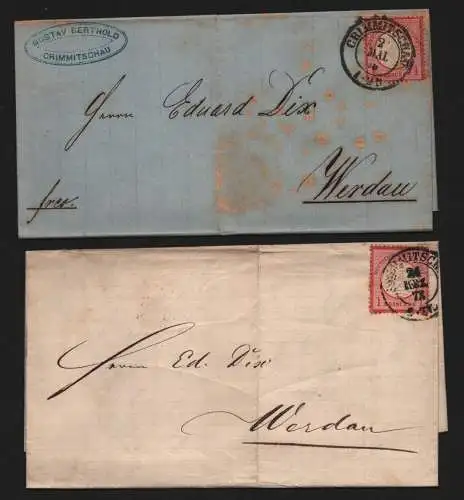 GUSTAV BERTHOLD
CRIMMITSCHAU
CRIMMITSCHAU
2
MAI
Herrn Eduard Dix
Werdau
frco.
24
73
Herrn Ed. Dix
Werdau